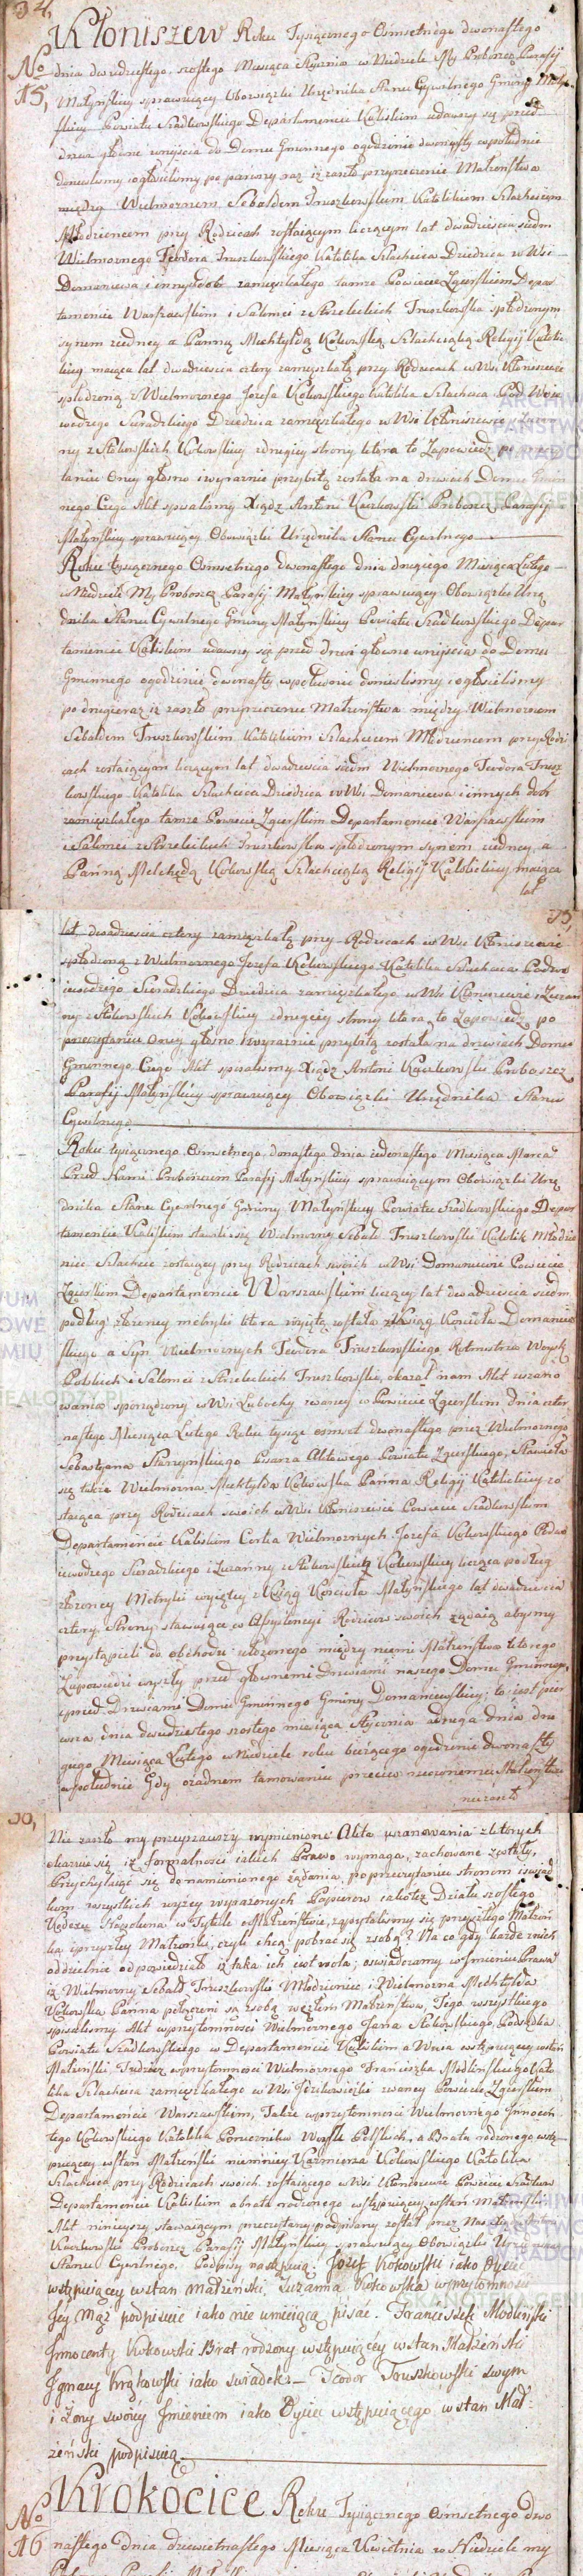 34,
Kłoniszew Roku Tysiącznego Osmsetnego dwonastego
No 15,
dnia dwudziestego szostego Miesiąca Stycznia w Niedziele My Proboszcz Parafij
Małyńskiey sprawuiący Obowiązki Urzędnika Stanu Cywilnego Gminy Małyń
skiey Powiatu Szadkowskiego Departamencie Kaliskim udawszy się przed
drzwi główne wniyścia do Domu Gminnego ogodzinie dwonasty wpołudnie
donieslismy i ogłosilismy po pierwszy raz iż zaszło przyrzeczenie Małżeństwa
między Wielmożnem Sebaldem Truszkowskim Katolikiem Szlachcicem
Młodziencem przy Rodzicach zostaiącym liczącym lat dwadziescia siedm
Wielmożnego Teodora Truszkowskiego Katolika Szlachcica Dziedzica w Wsi
Domaniewa i innych dobr zamięszkałego tamże Powiecie Zgierskim Depar
tamencie Warszawskim i Salomei z Strzeleckich Truszkowska spłodzonym
synem iedney a Panną Mechtyldą Kokowską Szlachcianką Religij Katoli
ckiey maiąca lat dwadziescia cztery zamięszkałą przy Rodzicach w Wsi Kłoniszewie
spłodzoną z Wielmożnego Jozefa Kokowskiego Katolika Szlachcica Pod Woie
wodzego Sieradzkiego Dziedzica zamięszkałego w Wsi Kłoniszewie i Zuzan
ny z Stokowskich Kokowskiey zdrugiey strony ktora to Zapowiedz po przeczy
taniu Oney głosno i wyraznie przybitą została na drzwiach Domu Gmin
nego Czego Akt spisalismy Xiądz Antoni Kaczkowski Proboszcz Parafij
Małyńskiey sprawuiący Obowiązki Urzędnika Stanu Cywilnego
Roku tysiącznego Osmsetnego dwonastego dnia drugiego Miesiąca Lutego
w Niedziele My Proboszcz Parafij Małyńskiey sprawuiący Obowiązki Urzę
dnika Stanu Cywilnego Gminy Małyńskiey Powiatu Szadkowskiego Depar
tamencie Kaliskim udawszy się przed drzwi głowne wniyścia do Domu
Gminnego ogodzinie dwonasty wpołudnie donieslismy i ogłosilismy
po drugi raz iż zaszło przyrzeczenie Małżeństwa między Wielmożnem
Sebaldem Truszkowskim Katolikiem Szlachcicem Młodziencem przy Rodzi
cach zostaiącym liczącym lat dwadziescia siedm Wielmożnego Teodora Trusz
kowskiego Katolika Szlachcica Dziedzica w Wsi Domaniewa i innych dobr
zamięszkałego tamże Powiecie Zgierskim Departamencie Warszawskim
i Salomei z Strzeleckich Truszkowska spłodzonym synem iedney, a
Panną Melchyldą Kokowską Szlachcianką Religij Katolickiey maiąca
lat
35,
lat dwadziescia cztery zamięszkałą przy Rodzicach w Wsi Kłoniszewie
spłodzoną z Wielmożnego Jozefa Kokowskiego Katolika Szlachcica Podwo
iewodzego Sieradzkiego Dziedzica zamięszkałego w Wsi Kłoniszewie i Zuzan
ny z Stokowskich Kokowskiey zdrugiey strony ktora, to Zapowiedz po
przeczytaniu Oney głosno i wyraznie przybitą została na drzwiach Domu
Gminnego Czego Akt spisalismy Xiądz Antoni Kaczkowski Proboszcz
Parafij Małyńskiey sprawuiący Obowiązki Urzędnika Stanu
Cywilnego
Roku tysiącznego Osmsetnego, dwonastego dnia iedenastego Miesiąca Marca
Przed Nami Proboszczem Parafij Małyńskiey sprawuiącym Obowiązki Urzę
dnika Stanu Cywilnego Gminy Małyńskiey Powiatu Szadkowskiego Depar
tamencie Kaliskim stawił się Wielmożny Sebald Truszkowski Katolik Młodzie
niec Szlachcic zostaiący przy Rodzicach swoich w Wsi Domaniewie Powiecie
Zgierskim Departamencie Warszawskim liczący lat dwadziescia siedm
podług złożoney metryki ktora wyięta została z Xiąg Kościoła Domaniew
skiego a Syn Wielmożnych Teodora Truszkowskiego Rotmistrza Woysk
Polskich i Salomei z Strzeleckich Truszkowskiey, okazał nam Akt uszano
wania sporządzony w Wsi Lubochy zwaney w Powiecie Zgierskim dnia czter
nastego Miesiąca Lutego Roku tysiąc osmset dwonastego przez Wielmożnego
Sebastyana Starzynskiego Pisarza Aktowego Powiatu Zgierskiego, Stawiła
się także Wielmożna Mechtylda Kokowska Panna Religij Katolickiey zo
staiąca przy Rodzicach swoich w Wsi Kłoniszewie Powiecie Szadkowskim
Departamencie Kaliskim Corka Wielmożnych Jozefa Kokowskiego Podwo
iewodzego Sieradzkiego i Zuzanny z Stokowskich Kokowskiey licząca podług
złożoney Metryki wyiętey z Xiąg Kościoła Małyńskiego lat dwadziescia
cztery, Strony stawaiące w Asystencyi Rodzicow swoich żądaią abysmy
przystąpili do obchodu ułożonego między niemi Małżeństwa ktorego
Zapowiedzi wyszły przed głownemi Drzwiami naszego Domu Gminnego,
i przed Drzwiami Domu Gminnego Gminy Domaniewskiey, to iest pier
wsza dnia dwudziestego szostego miesiąca Stycznia a druga dnia dru
giego Miesiąca Lutego w Niedziele roku bieżącego ogodzinie dwonasty
wpołudnie Gdy ożadnem tamowaniu przeciw rzeczonemu Małżeństwu
niezaszło
36,
Nie zaszło my przeyrzawszy wymienione Akta uszanowania zktorych
okazuie się iż formalnosci iakich Prawo wymaga, zachowane zostały,
Przychylaiąc się do namienionego żądania, poprzeczytaniu stronom i swiad
kom wszystkich wyżey wyrażonych Papierow iakoteż Działu szostego
Kodexu Napoleona w Tytule o Małżeństwie, zapytalismy się przyszłego Małżon
ka i przyszłey Małżonki, czyli chcą pobrac się zsobą? Na co gdy każde znich
oddzielnie odpowiedziało iż taka ich iest wola; oswiadczamy w Imieniu Prawa
iż Wielmożny Sebald Truszkowski Młodzieniec i Wielmożna Mechtylda
Kokowska Panna połączeni są zsobą węzłem Małżeństwa, Tego wszystkiego
spisalismy Akt wprzytomnosci Wielmożnego Jana Stokowskiego Podsędka
Powiatu Szadkowskiego w Departamencie Kaliskim a Wuia wstępuiącey wstan
Małżeński Tudzież wprzytomnosci Wielmożnego Franciszka Modlinskiego Kato
lika Szlachcica zamięszkałego w Wsi Jerzkowiczki zwaney Powiecie Zgierskim
Departamencie Warszawskim, Także wprzytomnosci Wielmożnego Innocen
tego Kokowskiego Katolika Porucznika Woysk Polskich, a Brata rodzonego wstę
puiącey wstan Małżeński niemniey Kazimierza Kokowskiego Katolika
Szlachcica przy Rodzicach swoich zostaiącego w Wsi Kłoniszewie Powiecie Szadkow
Departamencie Kaliskim a brata rodzonego wstępuiącey wstan Małżeński
Akt ninieyszy stawaiącym przeczytany podpisany został przez Nas Xiędza Antoni
Kaczkowski Proboszcz Parafij Małyńskiey sprawuiący Obowiązki Urzędnika
Stanu Cywilnego. Podpisy następuią. Jozef Kokowski iako Oyciec
wstępuiącey wstan małżeński, Zuzanna Kokowska wprzytomnosci
Jey Mąż podpisuie iako nie umieiącą pisać. Franciszek Modlinski
Jnnocenty Kokowski Brat rodzony wstępuiącey wstan Małżeński
Jgnacy Krąkowski iako swiadek. Teodor Truszkowski swym
i Zony swoiey Jmieniem iako Oyciec wstępuiącego wstan Mał
żeński podpisuią.
Krokocice Roku Tysiącznego Osmsetnego dwo
No 16
nastego dnia dziewietnastego Miesiąca Kwietnia w Niedziele my